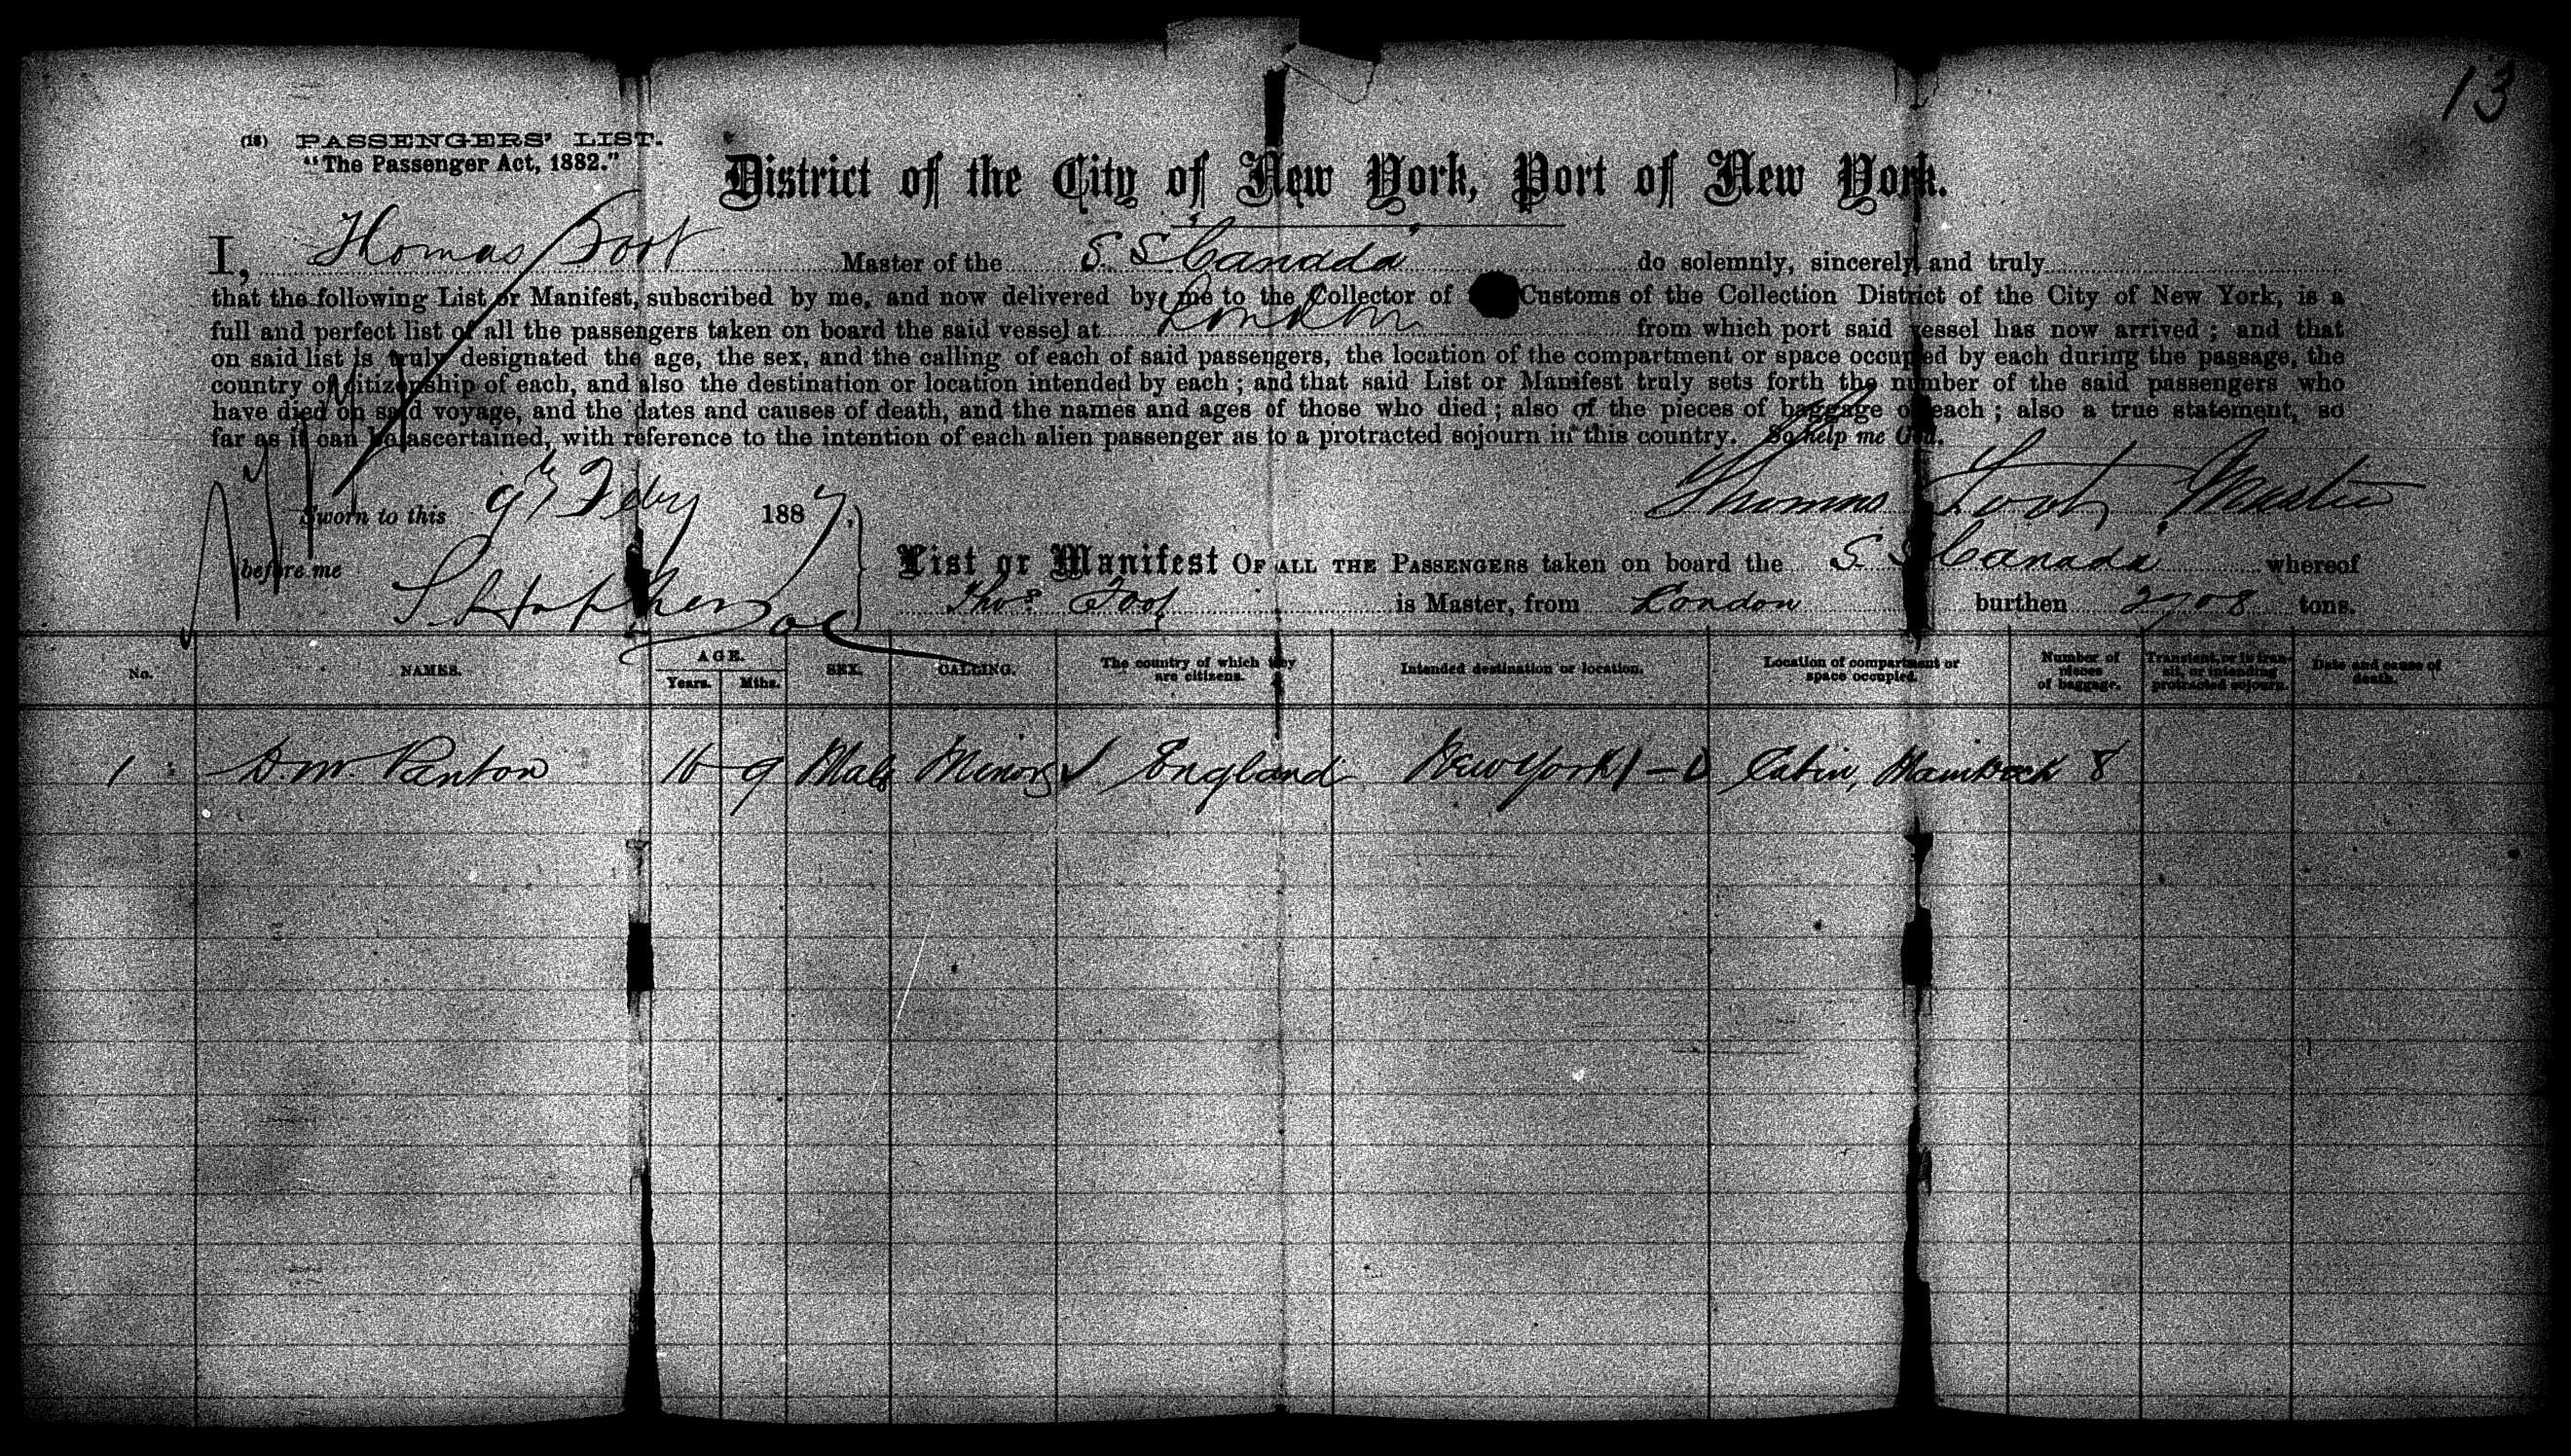 13
(18) PASSENGERS' LIST.
"The Passenger Act, 1882."
District of the City of New York, Port of New York.
I, Thomas Foot Master of the S. S. Canada do solemnly, sincerely and truly
that the following List or Manifest, subscribed by me, and now delivered by me to the Collector of Customs of the Collection District of the City of New York, is a
full and perfect list of all the passengers taken on board the said vessel at London from which port said vessel has now arrived; and that
on said list is truly designated the age, the sex, and the calling of each of said passengers, the location of the compartment or space occupied by each during the passage, the
country of citizenship of each, and also the destination or location intended by each; and that said List or Manifest truly sets forth the number of the said passengers who
have died on said voyage, and the dates and causes of death, and the names and ages of those who died; also of the pieces of baggage of each; also a true statement, so
far as it can be ascertained, with reference to the intention of each alien passenger as to a protracted sojourn in this country. So help me God.
Sworn to this 9th Feby 1887,
Thomas Foot Master
before me
List or Manifest OF ALL THE PASSENGERS taken on board the S. S. Canada whereof
Thos. Foot is Master, from London burthen tons.
No. NAMES. AGE. Years. Mths. SEX. CALLING. The country of which they are citizens. Intended destination or location. Location of compartment or space occupied. Number of pieces of baggage. Transient, or in transit, or intending protracted sojourn. Date and cause of death.
1 D. M. Panton 16 9 Male Minor England New York Cabin, 8